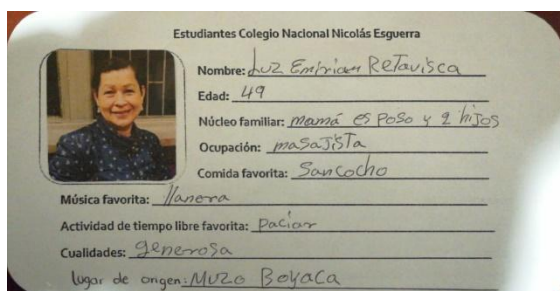 Estudiantes Colegio Nacional Nicolás Esguerra
Nombre: Luz Retavisca
Edad: 49
Núcleo familiar: mamá esposo y 2 hijos
Ocupación: masajista
Comida favorita: Sancocho
Música favorita: llanera
Actividad de tiempo libre favorita: paciar
Cualidades: generosa
lugar de origen: MUZO Boyaca